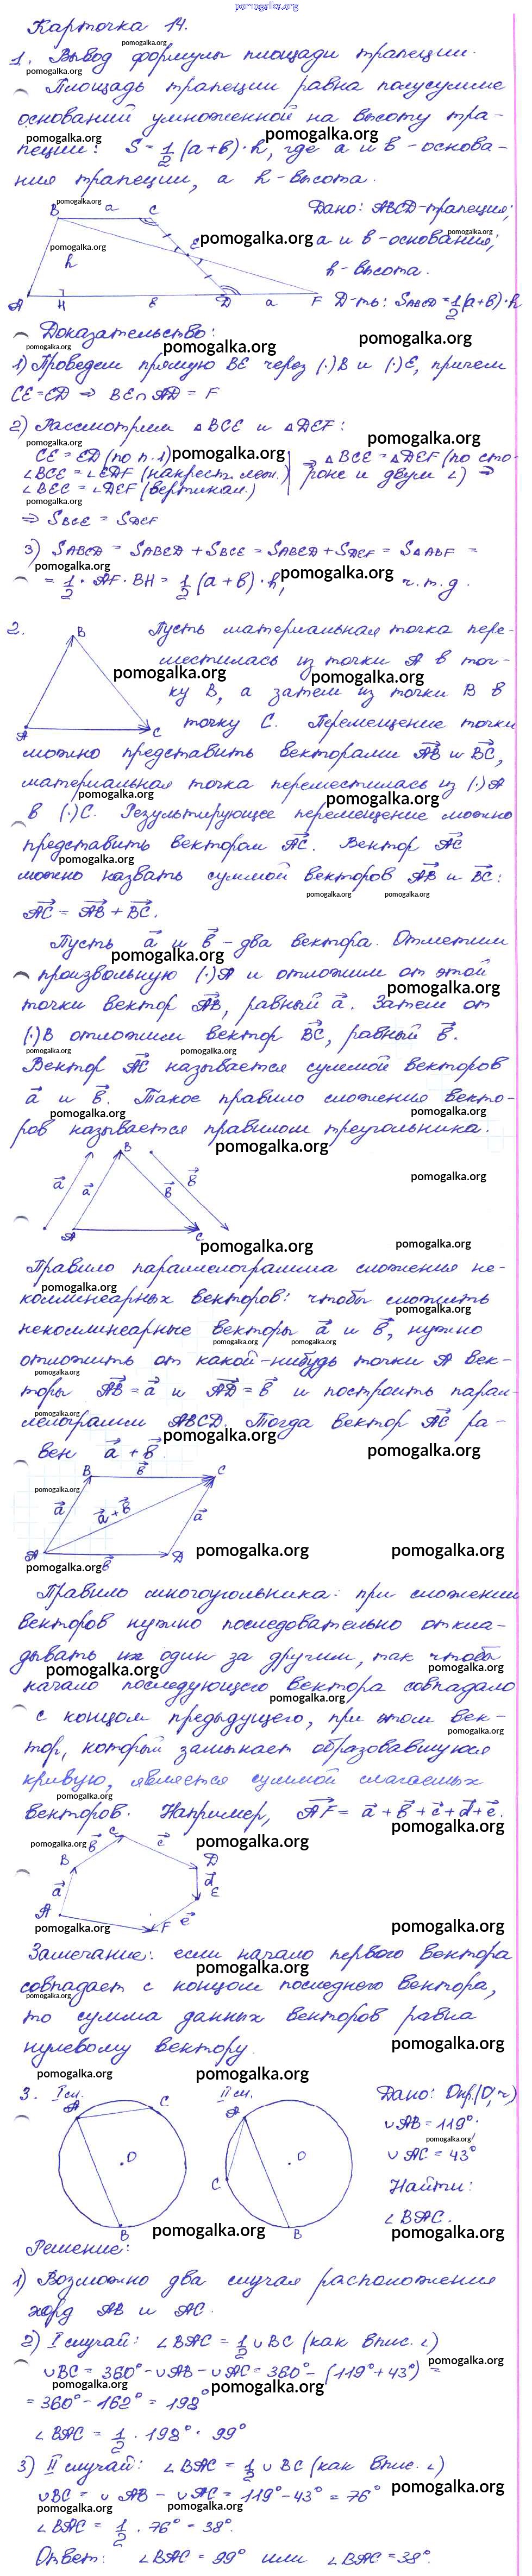 pomogalka.org
Карточка 14.
1. Вывод формулы площади трапеции.
Площадь трапеции равна полусумме
оснований умноженной на высоту тра-
пеции: S = 1/2 (a+b)·h, где a и b - основа-
ния трапеции, а h - высота.
B a C
E
h
A H b D a F
Дано: ABCD - трапеция;
a и b - основания;
h - высота.
Д-ть: SABCD = 1/2 (a+b)·h
Доказательство:
1) Проведем прямую BE через (·)B и (·)E, причем
CE = ED ⇒ BE ∩ AD = F
2) Рассмотрим △BCE и △DEF:
CE = ED (по п.1)
∠BCE = ∠EDF (накрест. леж.)
∠BEC = ∠DEF (вертикал.)
⇒ △BCE = △DEF (по сто-
роне и двум ∠) ⇒
⇒ SBCE = SDEF
3) SABCD = SABED + SBCE = SABED + SDEF = S△ABF =
= 1/2 · AF · BH = 1/2 (a+b)·h, ч.т.д.
2. Пусть материальная точка пере-
местилась из точки A в точ-
ку B, а затем из точки B в
точку C. Перемещение точки
можно представить векторами AB и BC,
материальная точка переместилась из (·)A
в (·)C. Результирующее перемещение можно
представить вектором AC. Вектор AC
можно назвать суммой векторов AB и BC:
AC = AB + BC.
Пусть a и b - два вектора. Отметим
произвольную (·)A и отложим от этой
точки вектор AB, равный a. Затем от
(·)B отложим вектор BC, равный b.
Вектор AC называется суммой векторов
a и b. Такое правило сложения векто-
ров называется правилом треугольника.
a a B b b
A C
Правило параллелограмма сложения не-
коллинеарных векторов: чтобы сложить
неколлинеарные векторы a и b, нужно
отложить от какой-нибудь точки A век-
торы AB = a и AD = b и построить парал-
лелограмм ABCD. Тогда вектор AC ра-
вен a + b.
B b C
a a+b a
A b D
Правило многоугольника: при сложении
векторов нужно последовательно откла-
дывать их один за другим, так чтобы
начало последующего вектора совпадало
с концом предыдущего, при этом век-
тор, который замыкает образовавшуюся
кривую, является суммой слагаемых
векторов. Например, AF = a + b + c + d + e.
C c
b
B D
a d
E
A F e
Замечание: если начало первого вектора
совпадает с концом последнего вектора,
то сумма данных векторов равна
нулевому вектору.
3. I сл. II сл.
A C O B
A C O B
Дано: Окр.(O; r)
∪AB = 119°
∪AC = 43°
Найти:
∠BAC.
Решение:
1) Возможно два случая расположения
хорд AB и AC.
2) I случай: ∠BAC = 1/2 ∪BC (как впис. ∠)
∪BC = 360° - ∪AB - ∪AC = 360° - (119° + 43°) =
= 360° - 162° = 198°
∠BAC = 1/2 · 198° = 99°
3) II случай: ∠BAC = 1/2 ∪BC (как впис. ∠)
∪BC = ∪AB - ∪AC = 119° - 43° = 76°
∠BAC = 1/2 · 76° = 38°.
Ответ: ∠BAC = 99° или ∠BAC = 38°.